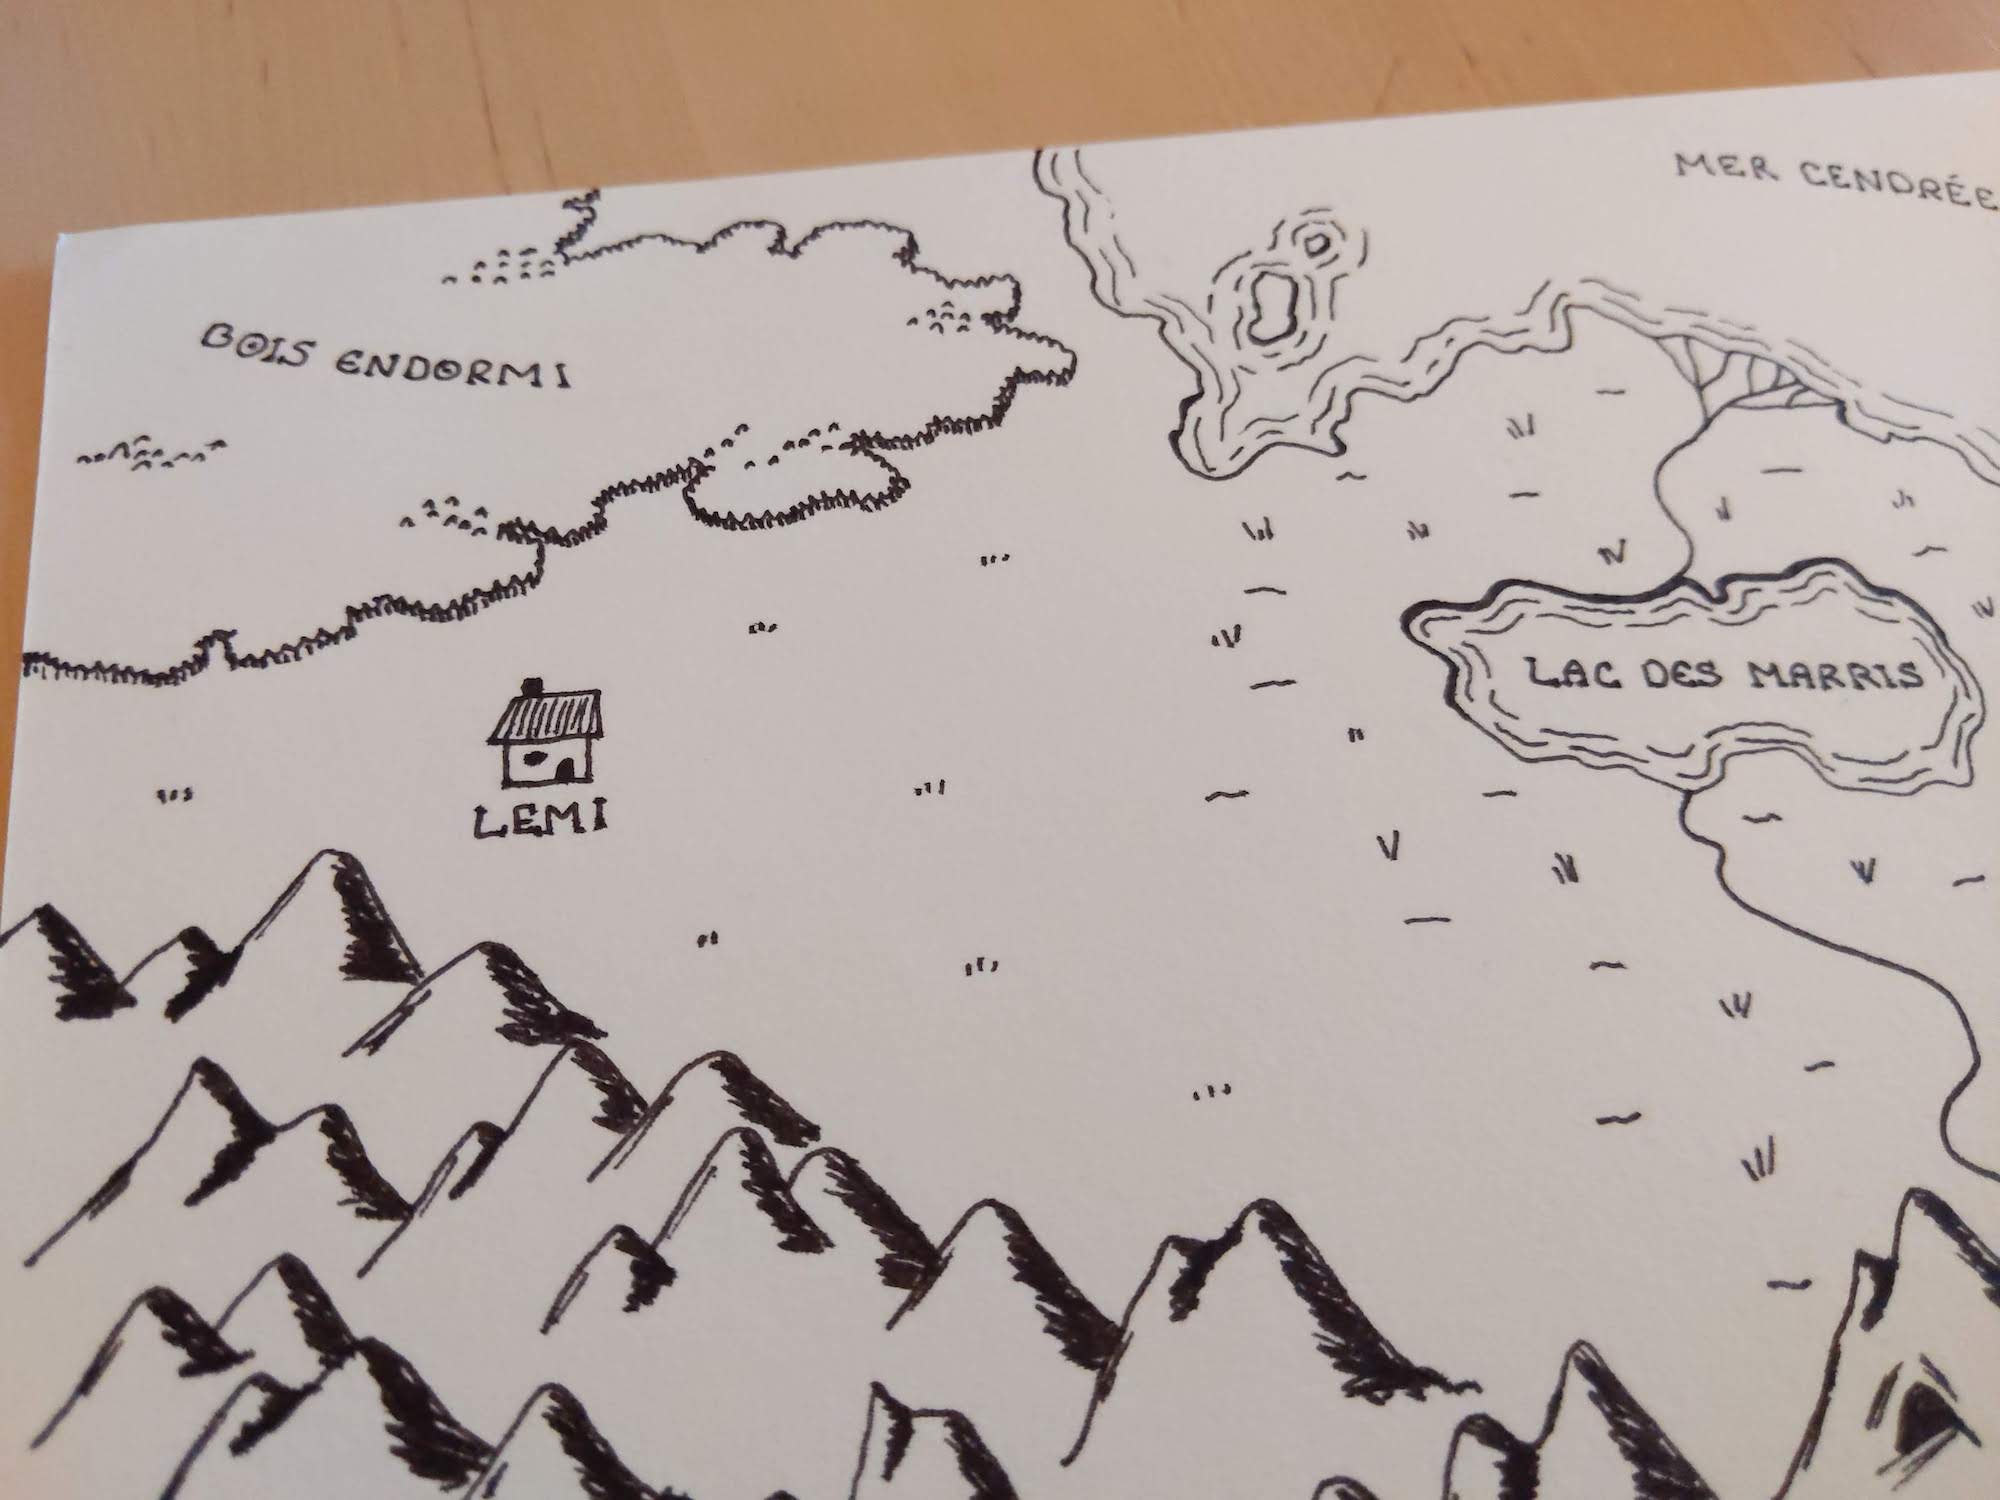 MER CENDRÉE
BOIS ENDORMI
LAC DES MARRIS
LEMI